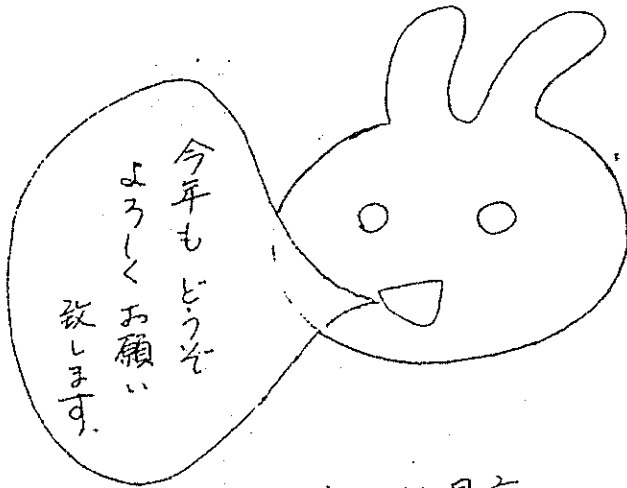 今年も どうぞ
よろしくお願い
致します.